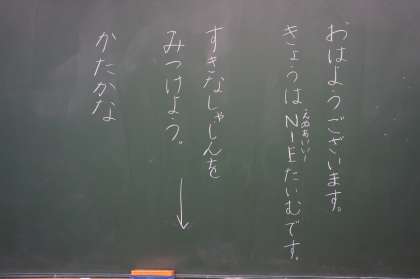 おはようございます。
きょうはNIEたいむです。
えぬあいいー
すきなしゃしんを
みつけよう。
↓
かたかな